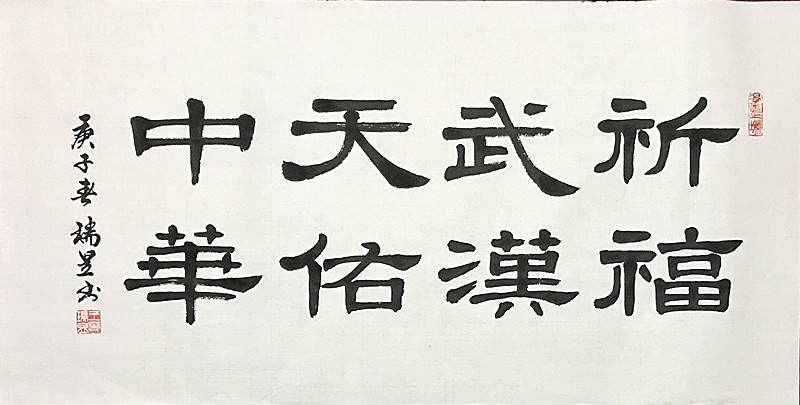 祈福
武漢
天佑
中華
庚子春 瑞昱书